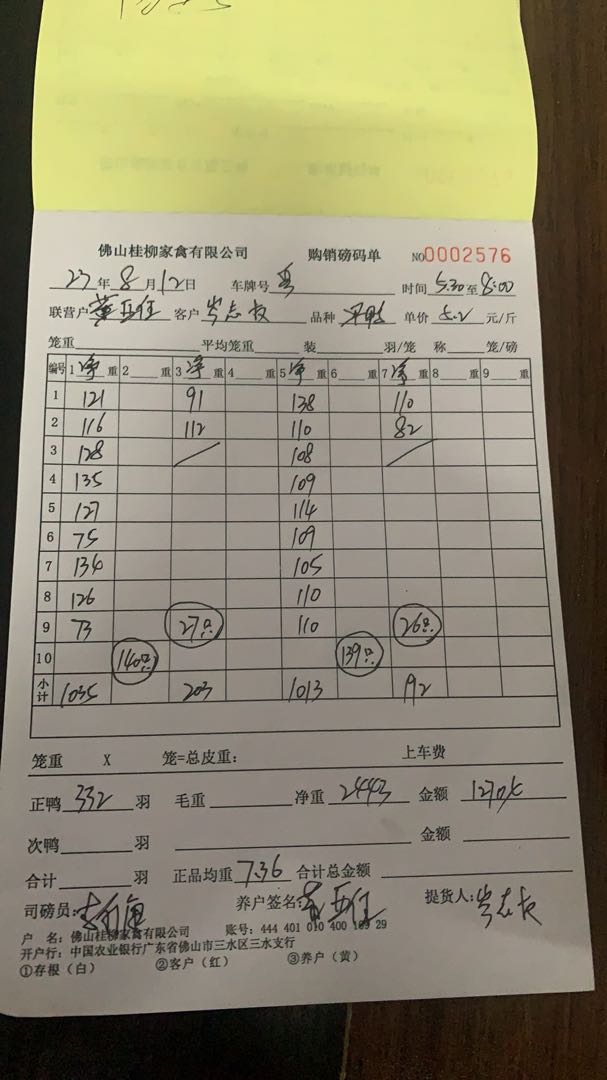 佛山桂柳家禽有限公司 购销磅码单 NO0002576
23年8月12日 车牌号粤 时间5.30至8:00
联营户 客户岑志权 品种 单价5.2元/斤
笼重 平均笼重 装 羽/笼 称 笼/磅
编号 1净重 2 重 3净重 4 重 5净重 6 重 7净重 8 重 9 重
1 121 91 138 110
2 116 112 110 82
3 128 108
4 135 109
5 127 114
6 75 109
7 134 105
8 126 110
9 73 27只 110 26只
10 140只 139只
小计 1035 203 1013 192
笼重 X 笼=总皮重: 上车费
正鸭332羽 毛重 净重2443 金额
次鸭 羽 金额
合计 羽 正品均重7.36 合计总金额
司磅员: 养户签名: 提货人:岑志权
户 名: 佛山桂柳家禽有限公司 账号: 444 401 010 400 169 29
开户行: 中国农业银行广东省佛山市三水区三水支行
①存根(白) ②客户(红) ③养户(黄)